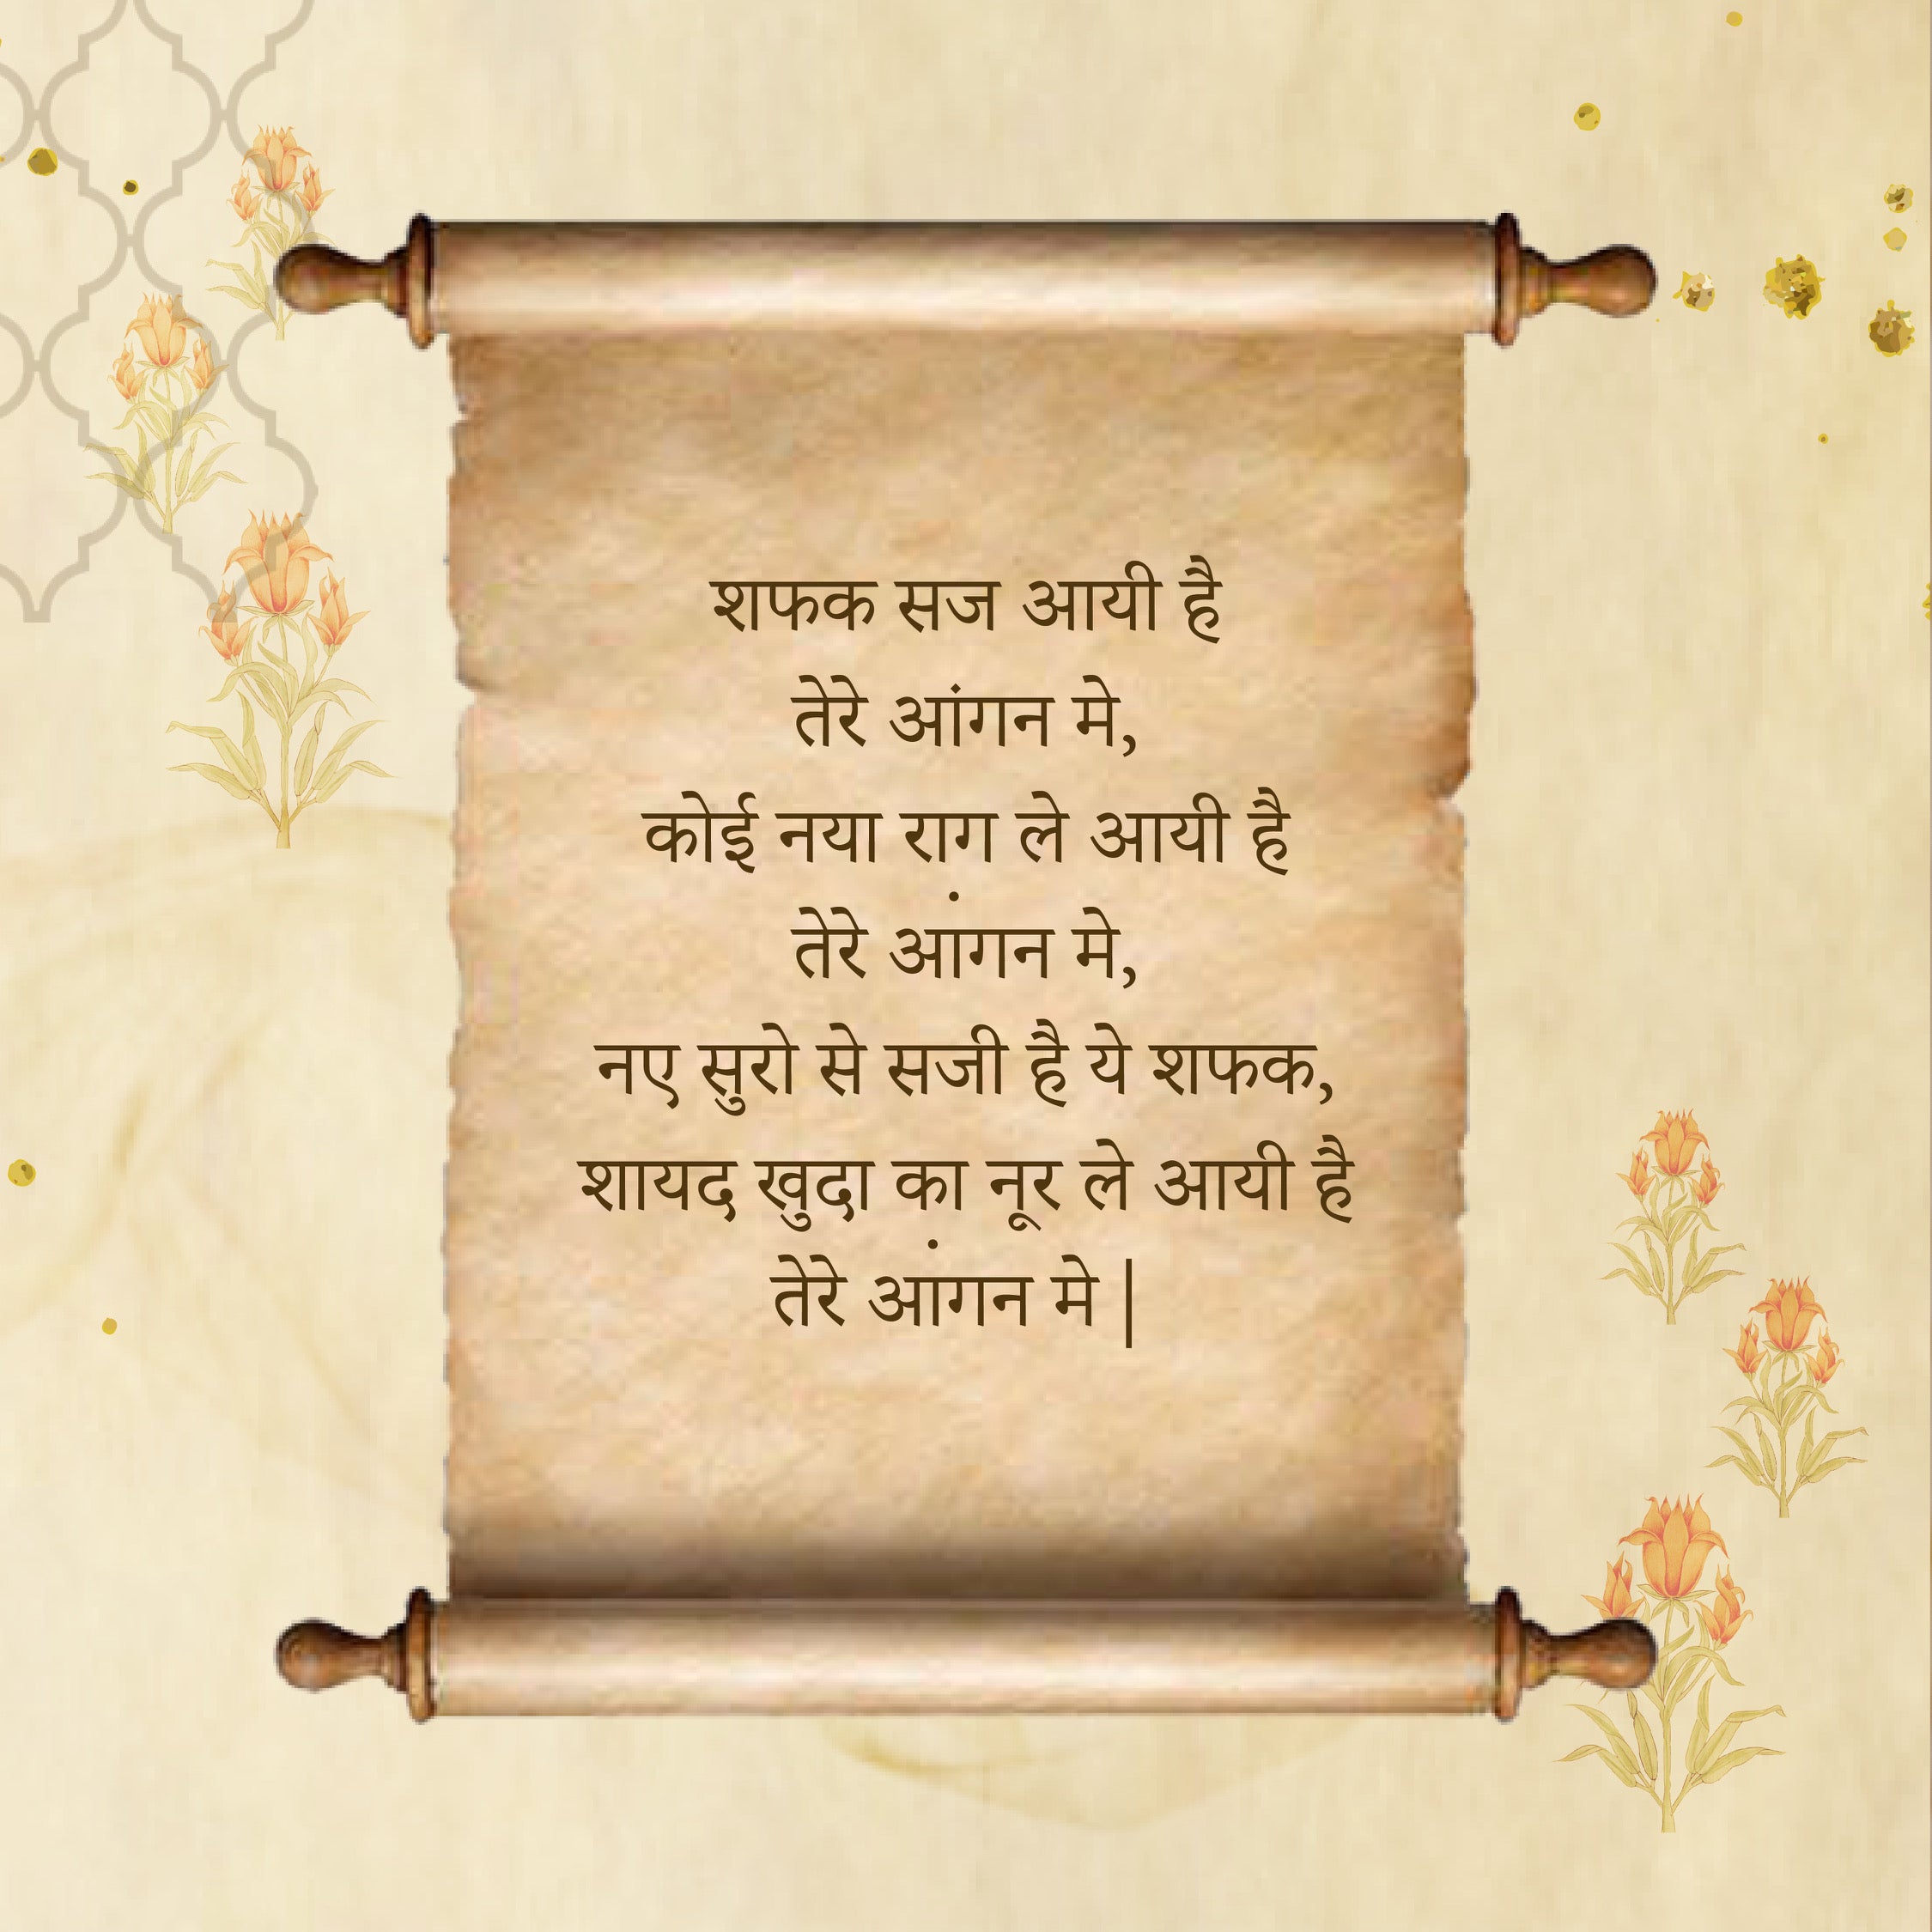 शफक सज आयी है
तेरे आंगन मे,
कोई नया राग ले आयी है
तेरे आंगन मे,
नए सुरो से सजी है ये शफक,
शायद खुदा का नूर ले आयी है
तेरे आंगन मे |